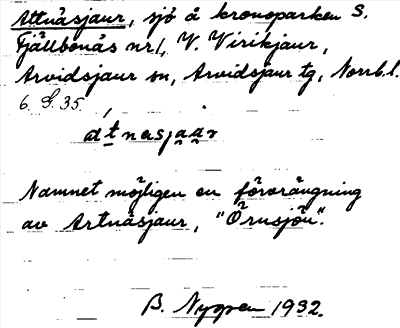 Attnäsjaur, sjö å kronoparken S.
Fjällbonäs nr 1, V. Virikjaur,
Arvidsjaur sn, Arvidsjaur tg, Norrb. l.
6. G. 35.
átnasjaar
Namnet möjligen en förvrängning
av Artnäsjaur, "Örnsjön".
B. Nygren 1932.